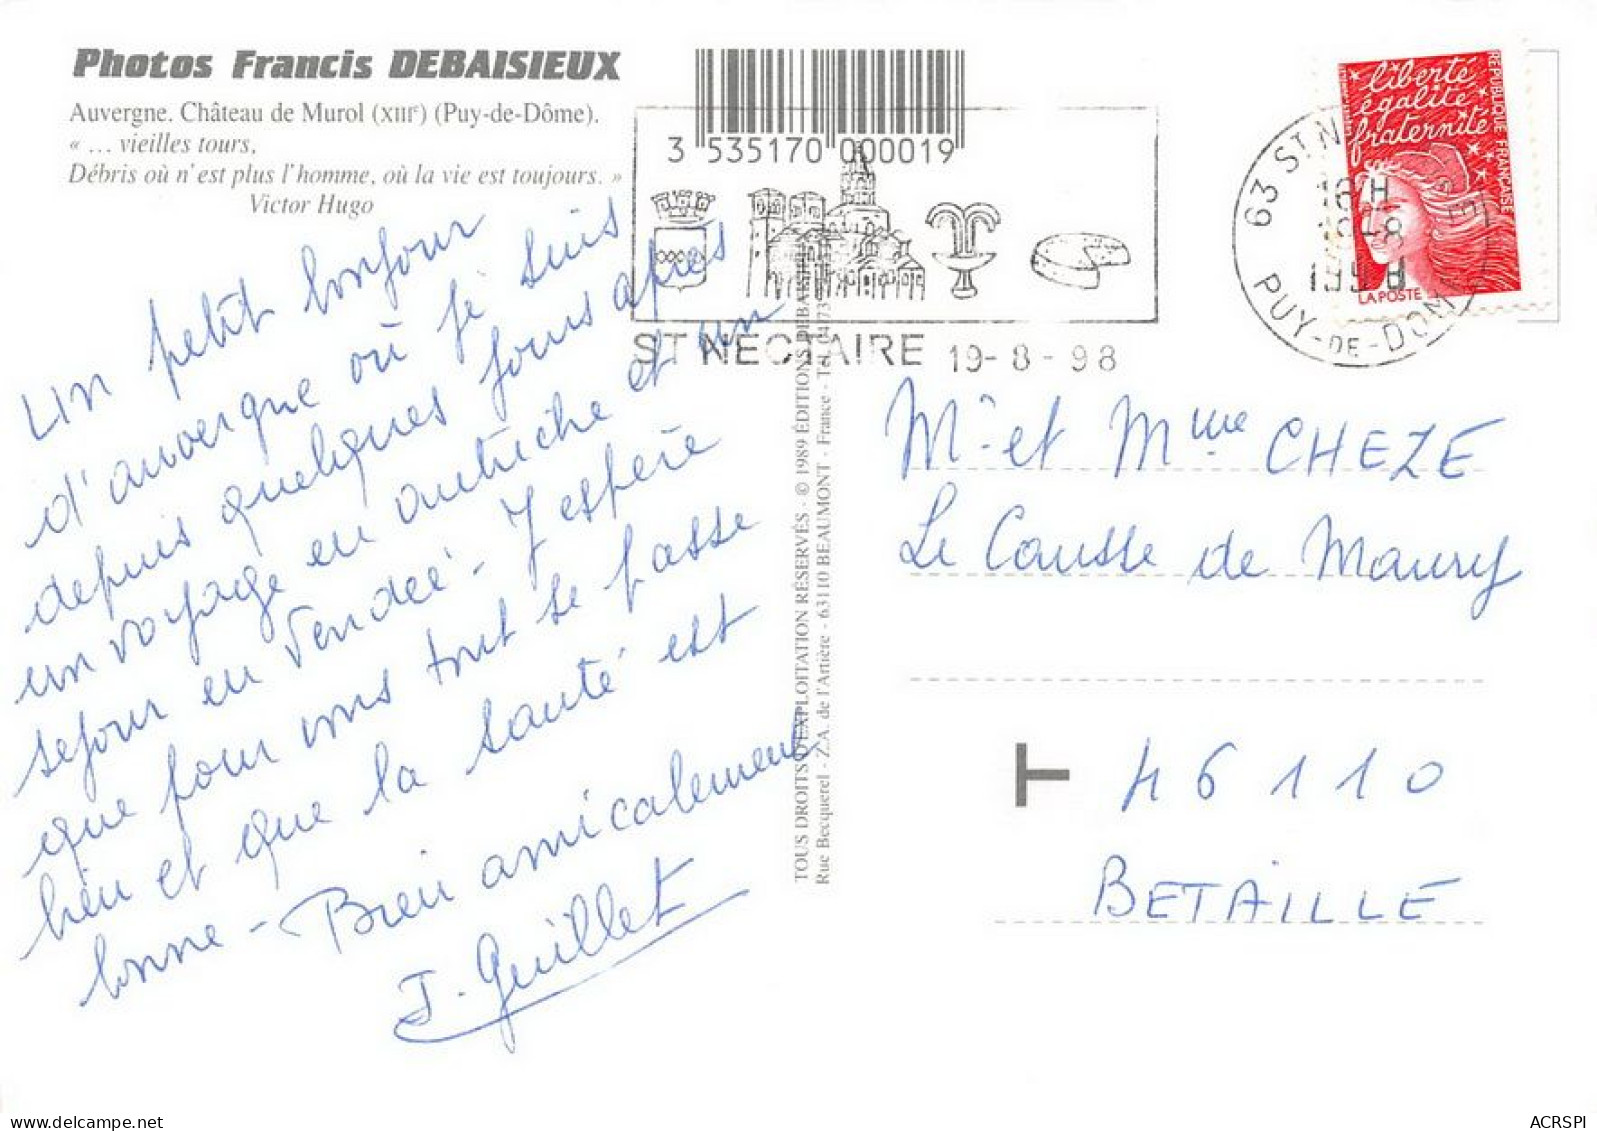 Photos Francis DEBAISIEUX
Auvergne. Château de Murol (XIIIᵉ) (Puy-de-Dôme).
« ... vieilles tours,
Débris où n'est plus l'homme, où la vie est toujours. »
Victor Hugo
3 535170 000019
ST NECTAIRE 19-8-98
63 ST N
18H
19-8
1998
PUY-DE-DOME
liberté
égalité
fraternité
REPUBLIQUE FRANCAISE
LA POSTE
Un petit bonjour
d'auvergne où je suis
depuis quelques jours après
un voyage en autriche et un
sejour en Vendeé - J'espère
que pour vous tout se passe
bien et que la santé est
bonne - Bien amicalement
J. Guillet
TOUS DROITS D'EXPLOITATION RÉSERVÉS - © 1989 ÉDITIONS DEBAISIEUX
Rue Becquerel - Z.A. de l'Artière - 63110 BEAUMONT - France - Tél.
Mr et Mme CHEZE
Le Causse de Maury
T 46110
BETAILLE
ACRSPI